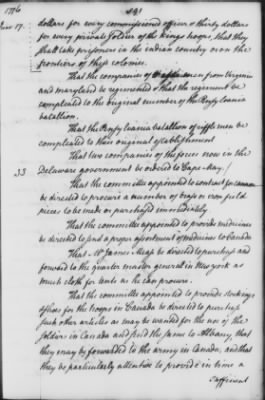 1776
June 17.
dollars for every commissioned officer & thirty dollars
for every private soldier of the kings troops, that they
shall take prisoners in the indian country or on the
frontiers of these colonies.
That the companies of rifflemen from Virginia
and maryland be regimented & that the regiment be
compleated to the original number of the Pensylvania
batallion.
That the Pensylvania batallion of rifflemen be
compleated to their original establishment
That two companies of the forces now in the
33
Delaware government be ordered to Cape-May.
That the committee appointed to contract for cannon
be directed to procure a number of brass or iron field
pieces to be made or purchased immediately
That the committee appointed to provide medicines
be directed to send a proper assortment of medicines to Canada
That Mr James Mease be directed to purchase and
forward to the quarter master general in New york as
much cloth for tents as he can procure.
That the committee appointed to provide
for the troops in Canada be directed to purchase
such other articles as may be wanted for the use of the
soldiers in Canada and send the same to Albany, that
they may be forwarded to the army in Canada, and that
they be particularly attentive to provide in time a
sufficient